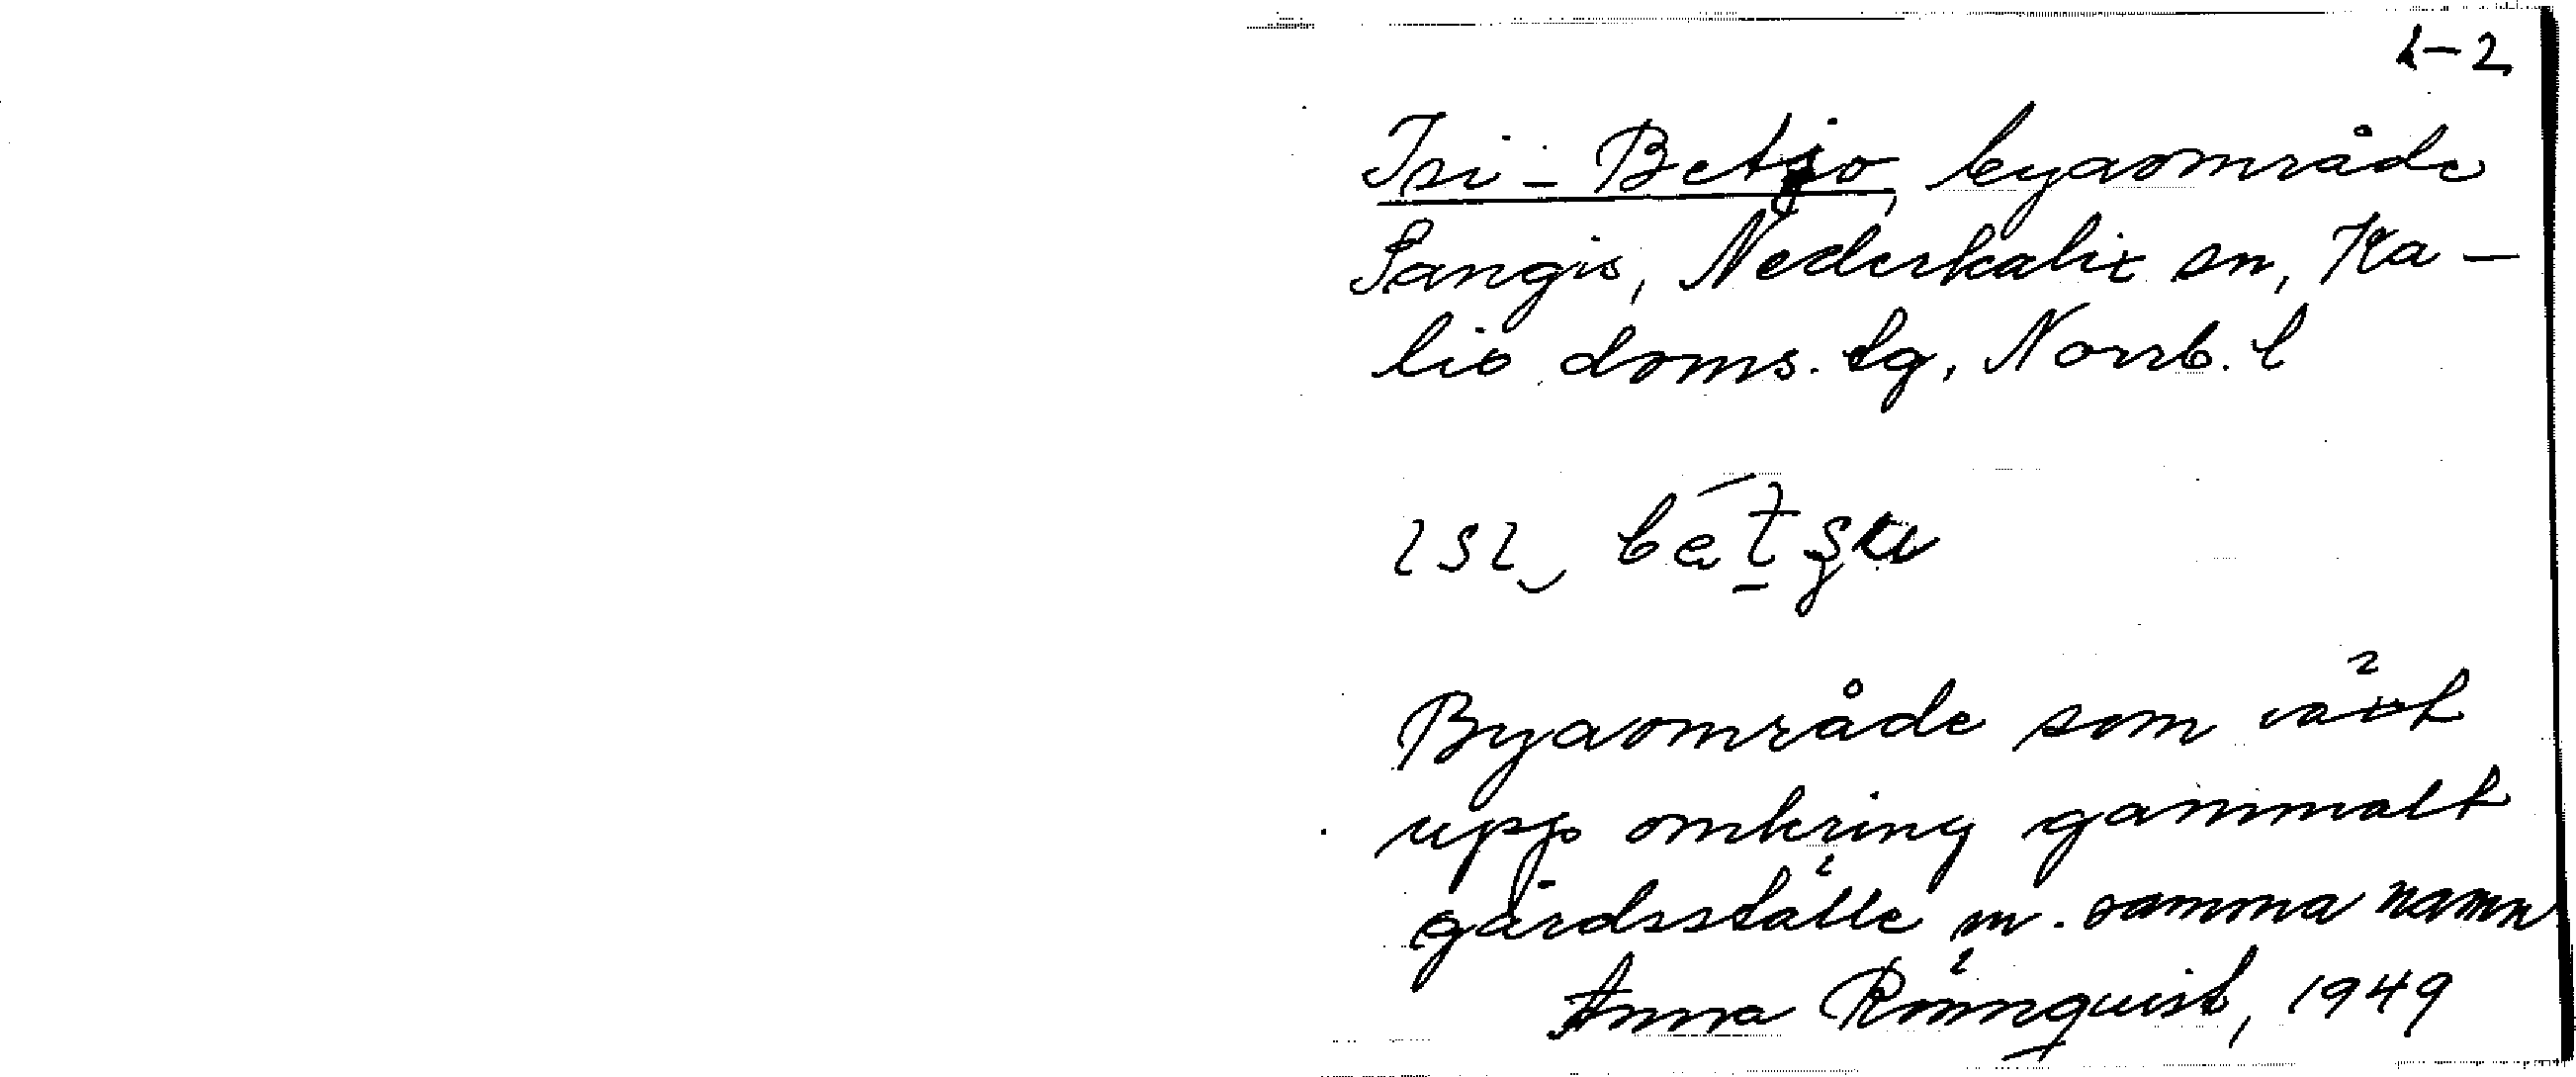 1-2
Isi-Betso, byaområde
Sangis, Nederkalix sn, Ka-
lix doms. tg, Norrb. l
Byaområde som växt
upp omkring gammalt
gårdsställe m. samma namn
Anna Rönnquist, 1949